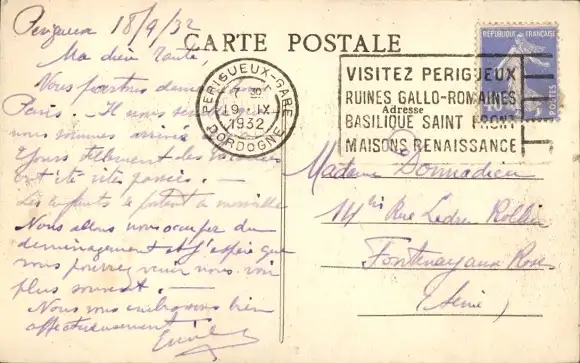 Périgueux 18/9/32
CARTE POSTALE
Ma chère Tante,
Nous partons
Paris. Il nous
nous sommes arrivés
tellement les vacances
ont été vite passées.
Les enfants se portent à merveille
Nous allons nous occuper du
déménagement et j'espère que
vous pourrez venir nous voir
plus souvent.
Nous vous embrassons bien
affectueusement
PERIGUEUX-GARE
7 30
19 IX
1932
DORDOGNE
VISITEZ PERIGUEUX
RUINES GALLO-ROMAINES
Adresse
BASILIQUE SAINT FRONT
MAISONS RENAISSANCE
REPUBLIQUE FRANÇAISE
POSTES
Madame Donnadieu
14 bis Rue Ledru Rollin
Fontenay aux Roses
(Seine)